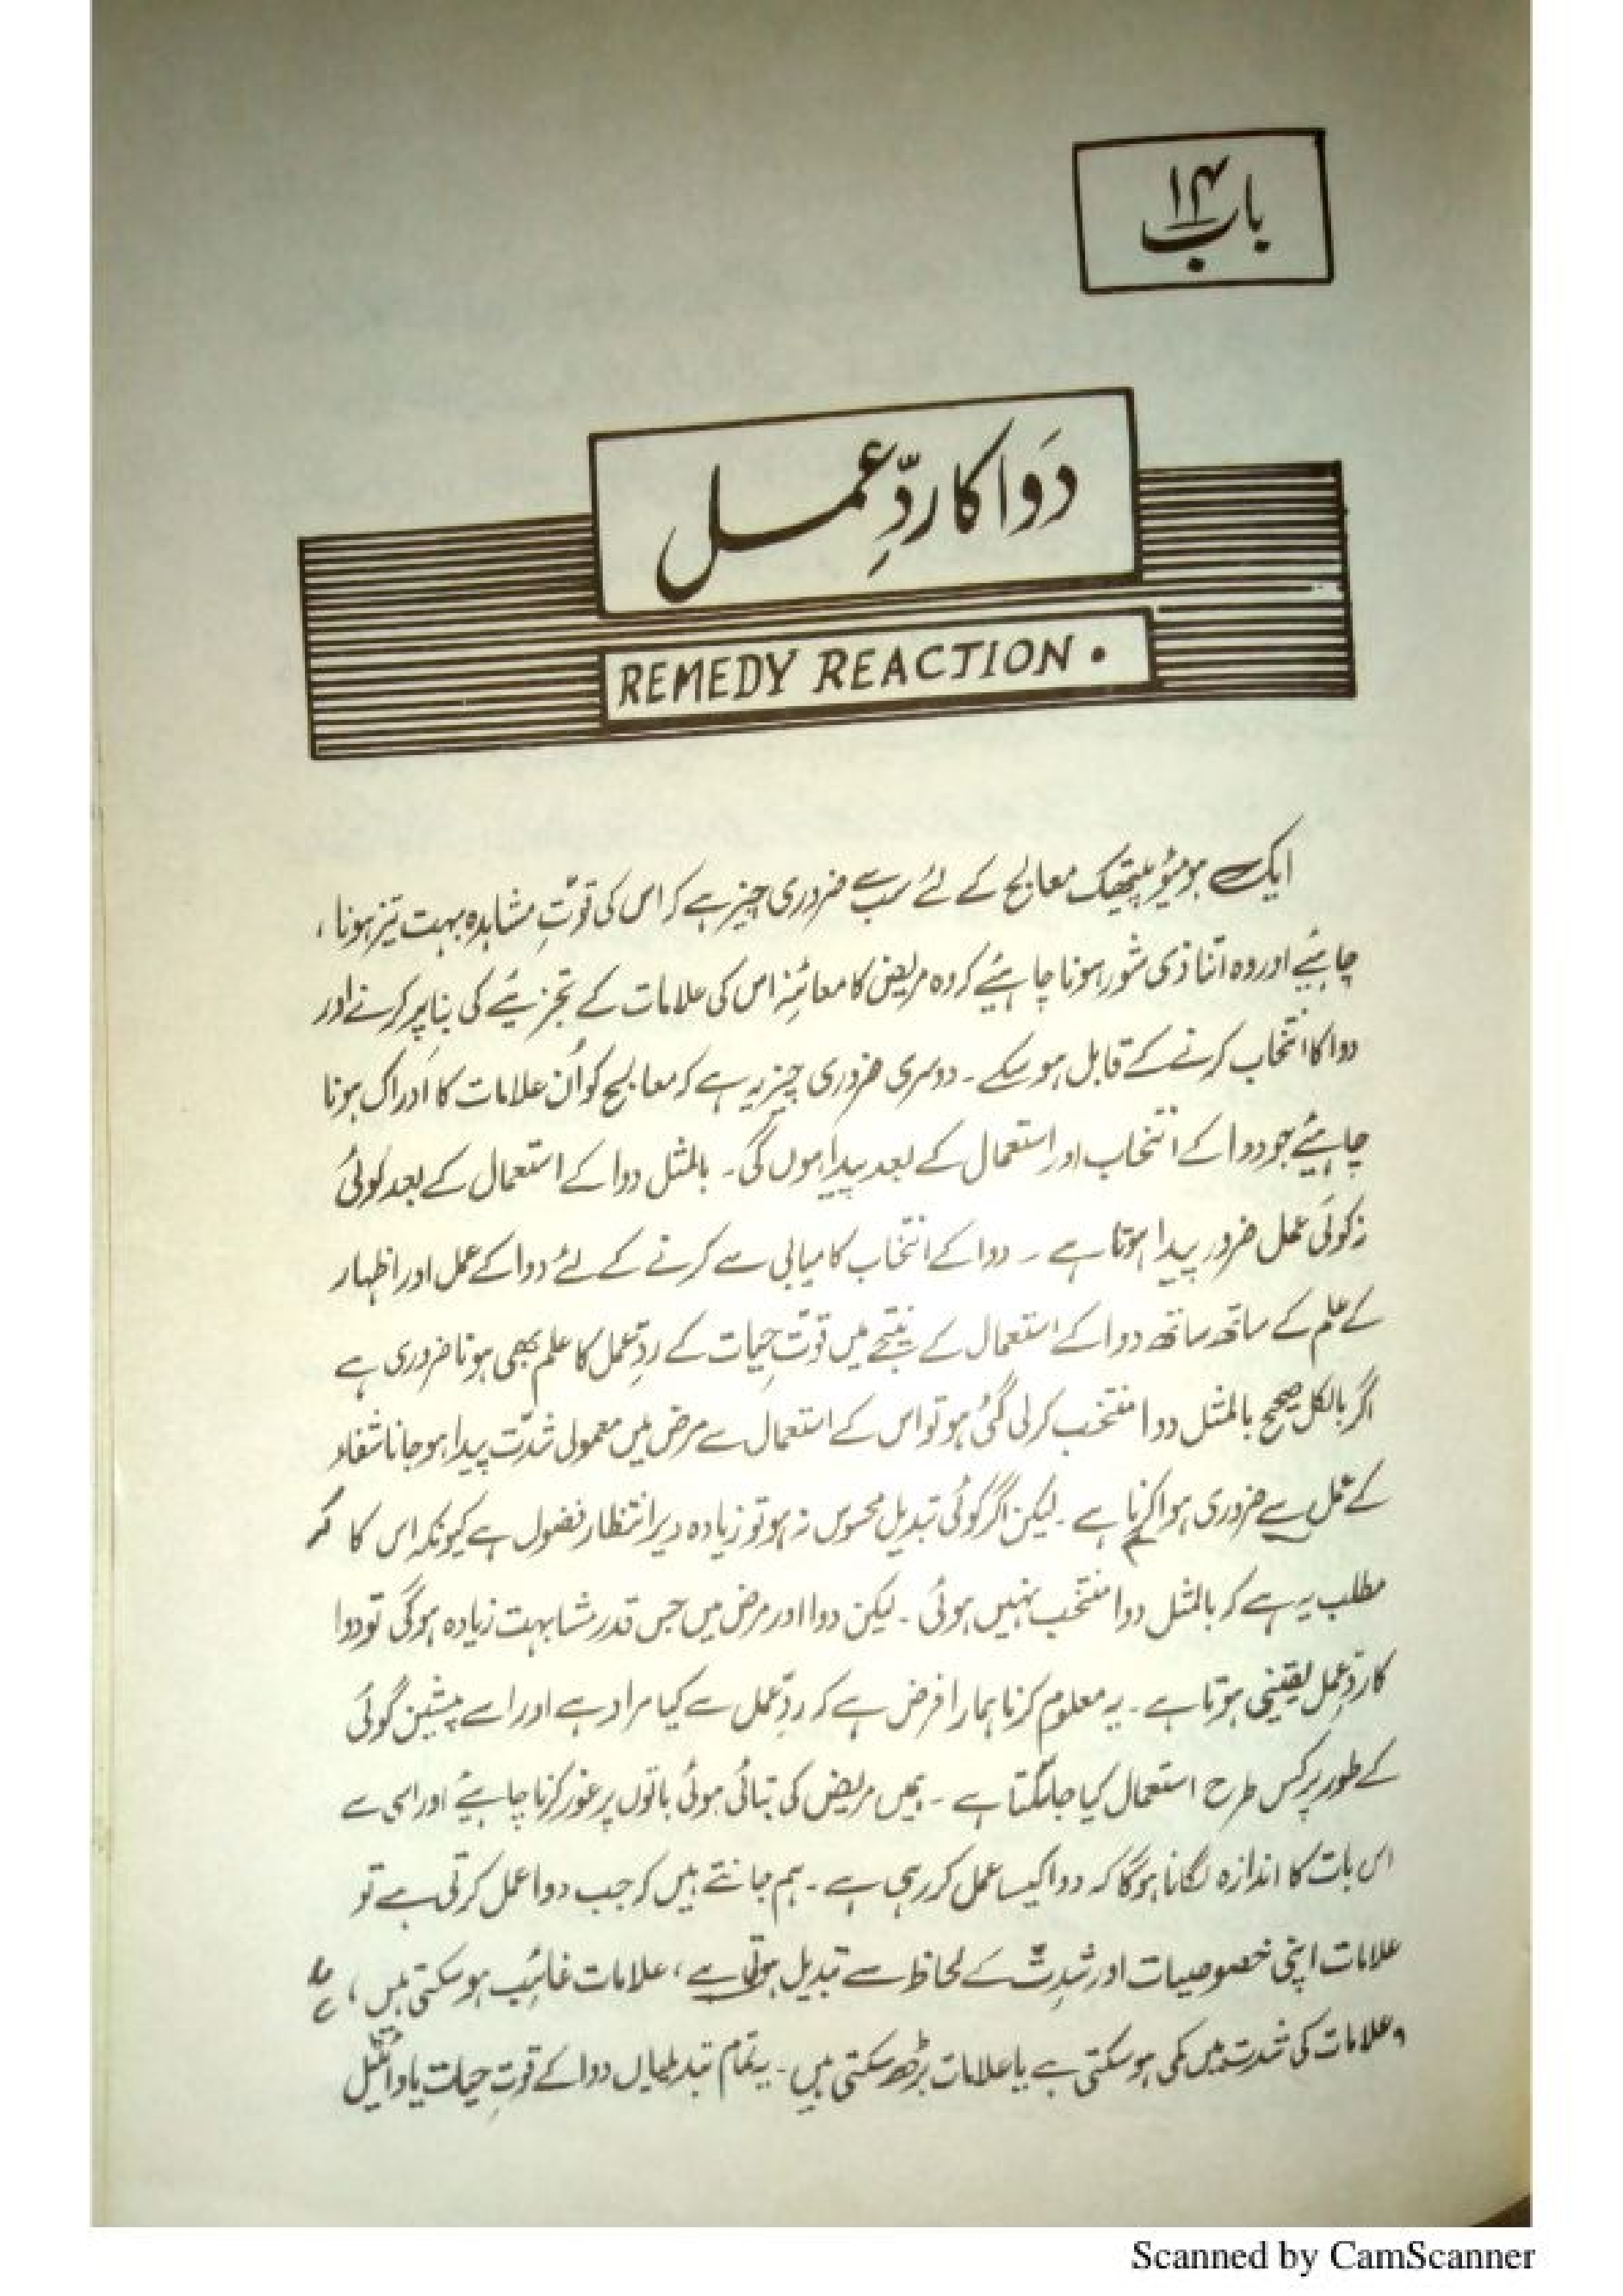 باب ۱۴
دَوا کا ردِّ عمل
REMEDY REACTION •
ایک ہومیوپیتھک معالج کے لئے سب سے ضروری چیز ہے کہ اس کی قوّتِ مشاہدہ بہت تیز ہونا ،
چاہیئے اور وہ اتنا ذی شعور ہونا چاہیئے کہ وہ مریض کا معائنہ اس کی علامات کے تجزیئے کی بنا پر کرنے اور
دوا کا انتخاب کرنے کے قابل ہو سکے ۔ دوسری ضروری چیز یہ ہے کہ معالج کو اُن علامات کا اَدراک ہونا
چاہیئے جو دوا کے انتخاب اور استعمال کے بعد پیدا ہوں گی ۔ بالمثل دوا کے استعمال کے بعد کوئی
نہ کوئی عمل ضرور پیدا ہوتا ہے ۔ دوا کے انتخاب کامیابی سے کرنے کے لئے دوا کے عمل اور اظہار
کے علم کے ساتھ ساتھ دوا کے استعمال کے نتیجے میں قوّتِ حیات کے ردِّ عمل کا علم بھی ہونا ضروری ہے
اگر بالکل صحیح بالمثل دوا منتخب کر لی گئی ہو تو اس کے استعمال سے مرض میں معمولی شدّت پیدا ہو جانا شفاء
کے عمل سے ضروری ہوا کرتا ہے ۔ لیکن اگر کوئی تبدیلی محسوس نہ ہو تو زیادہ دیر انتظار فضول ہے کیونکہ اس کا
مطلب یہ ہے کہ بالمثل دوا منتخب نہیں ہوئی ۔ لیکن دوا اور مرض میں جس قدر مشابہت زیادہ ہو گی تو دوا
کا ردِّ عمل یقینی ہوتا ہے ۔ یہ معلوم کرنا ہمارا فرض ہے کہ ردِّ عمل سے کیا مراد ہے اور اسے پیشین گوئی
کے طور پر کس طرح استعمال کیا جا سکتا ہے ۔ ہمیں مریض کی بتائی ہوئی باتوں پر غور کرنا چاہیئے اور اسی سے
اس بات کا اندازہ لگانا ہو گا کہ دوا کیسا عمل کر رہی ہے ۔ ہم جانتے ہیں کہ جب دوا عمل کرتی ہے تو
علامات اپنی خصوصیات اور شدّت کے لحاظ سے تبدیل ہوتی ہے ، علامات غائب ہو سکتی ہیں ،
علامات کی شدت میں کمی ہو سکتی ہے یا علامات بڑھ سکتی ہیں ۔ یہ تمام تبدیلیاں دوا کے قوتِ حیات یا وائٹیل
Scanned by CamScanner